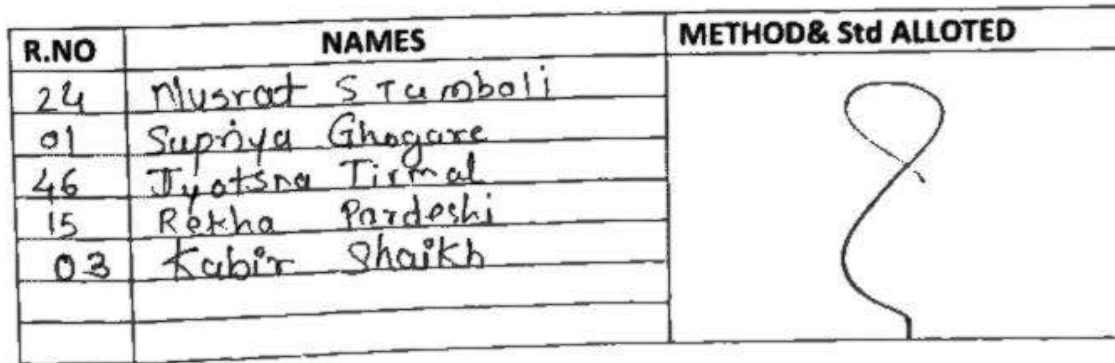 R.NO NAMES METHOD& Std ALLOTED
24 Nusrat S Tamboli
01 Supriya Ghogare
46 Jyotsna Tirmal
15 Rekha Pardeshi
03 Kabir Shaikh